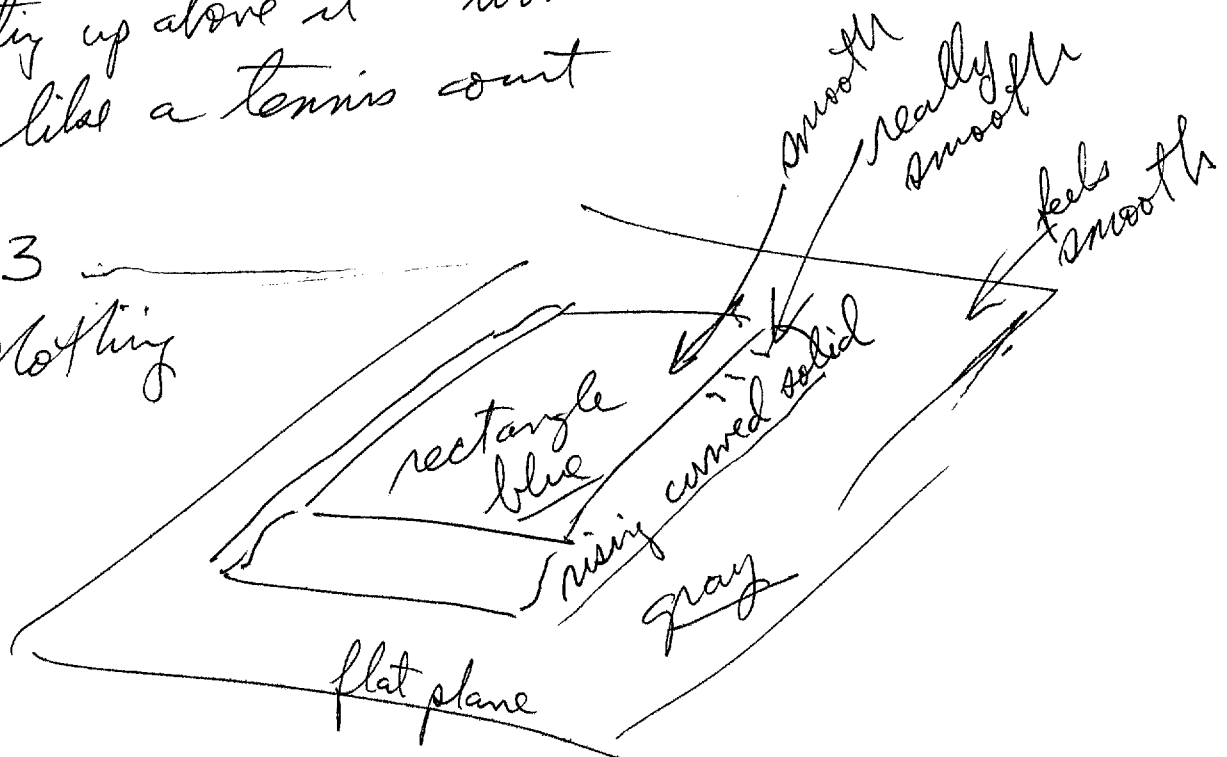 up above it
like a tennis court
smooth
really
smooth
feels
smooth
3
rectangle
blue
rising curved solid
gray
flat plane